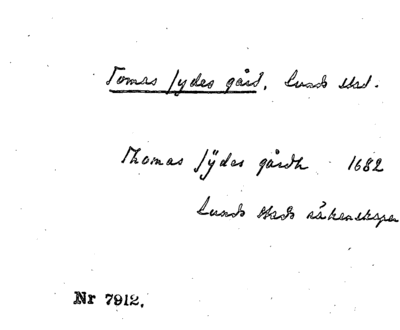 Tomas Jydes gård, Lunds stad.
Thomas Jÿdes gårdh 1682
Lunds stads räkenskaper
Nr 7912.